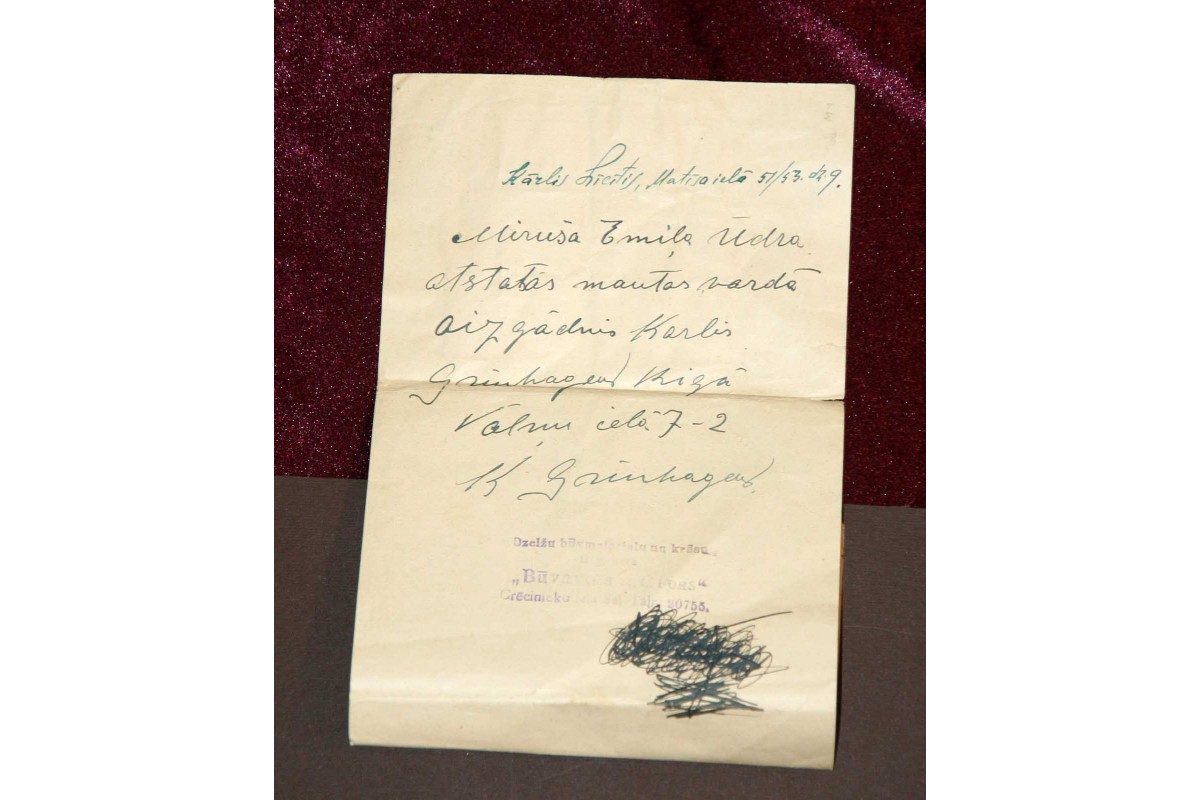 Kārlis Licitis, Matisa ielā 51/53. dz 9.
Miruša Emiļa Ūdra
atstatās mantas vardā
aizgādnis Karlis
Grünhagens Rigā
Vaļņu ielā 7-2
K Grünhagens.
Dzelžu būvmaterialu un krāsu
Grēcinieku 20755.